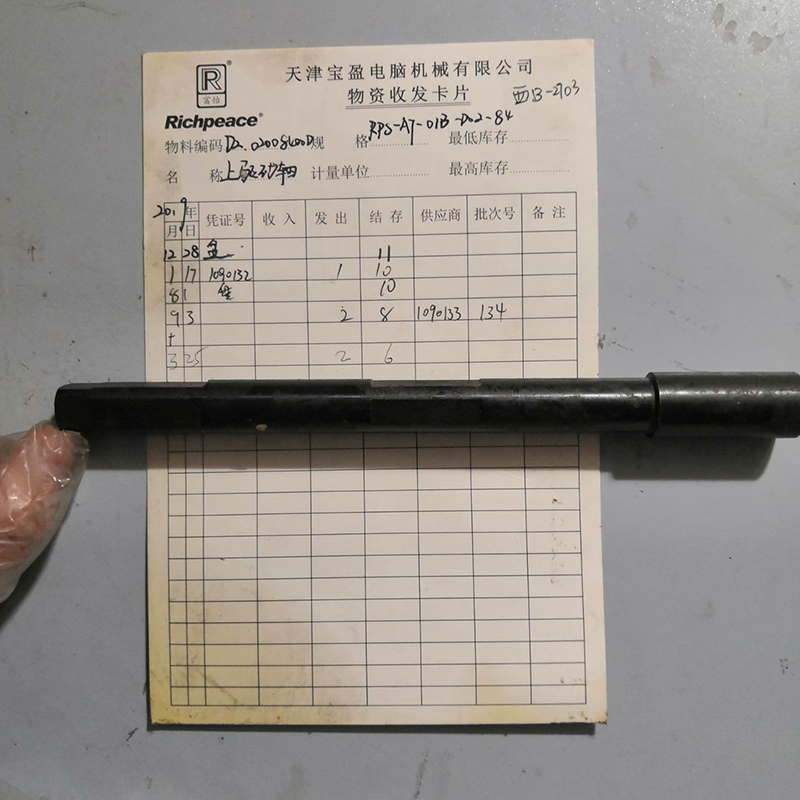 R®
富怡
Richpeace®
天津宝盈电脑机械有限公司
物资收发卡片 西B-2703
物料编码 规格 RPS-A7-01B-D02-84 最低库存
名称 上驱动轴 计量单位 最高库存
2019年 凭证号 收入 发出 结存 供应商 批次号 备注
月 日
12 28 盘 11
1 17 1090132 1 10
8 1 10
9 3 2 8 1090133 134
3 25 2 6